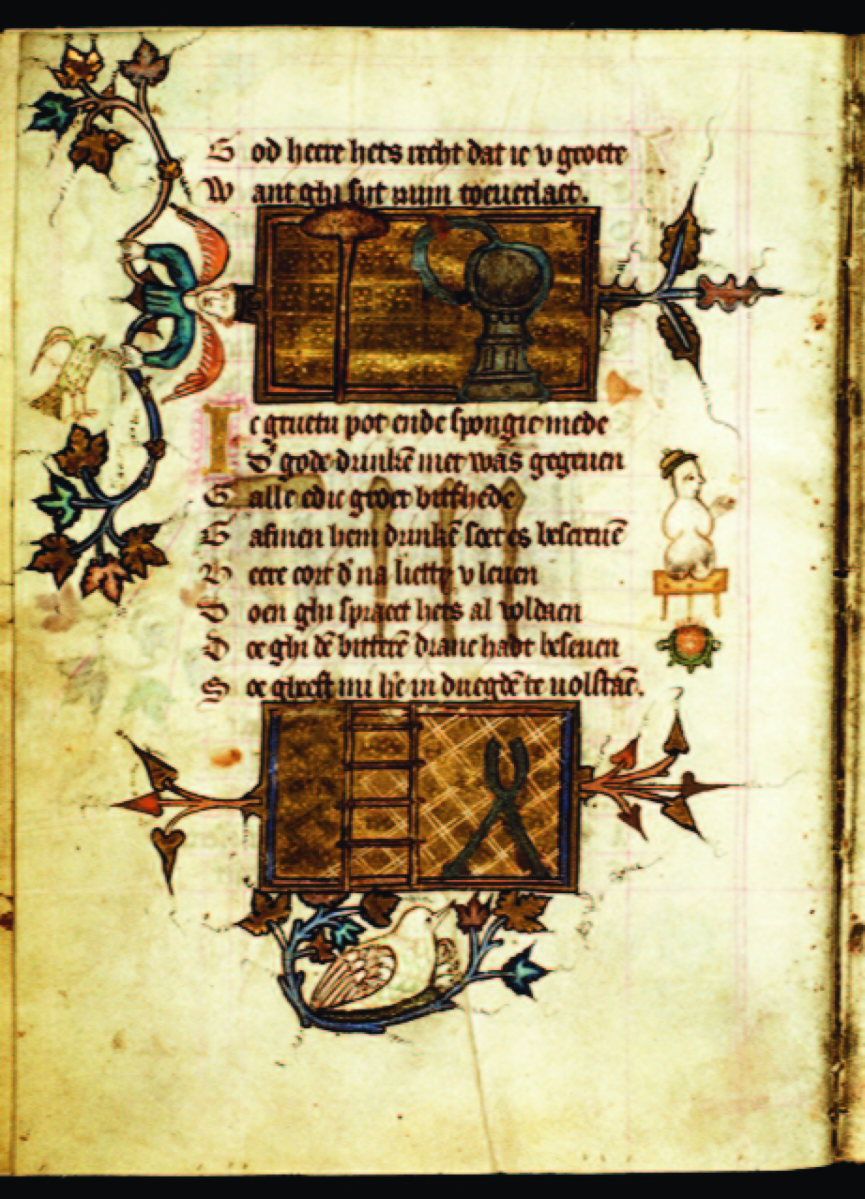 God heere hets recht dat ic v groete
Want ghi sijt mijn toeuerlaet.
Ic gruetu pot ende spongie mede
D' gode drinkē met was gegeuen
Galle edic groet bitthede
Gafmen hem drinkē soet es bescreuē
Heere cort d' na liettij v leuen
Doen ghi spraect hets al voldaen
Doe ghi dē bitterē dranc hadt beseuen
Soe gheeft mi hē in duegdē te uolstaē.